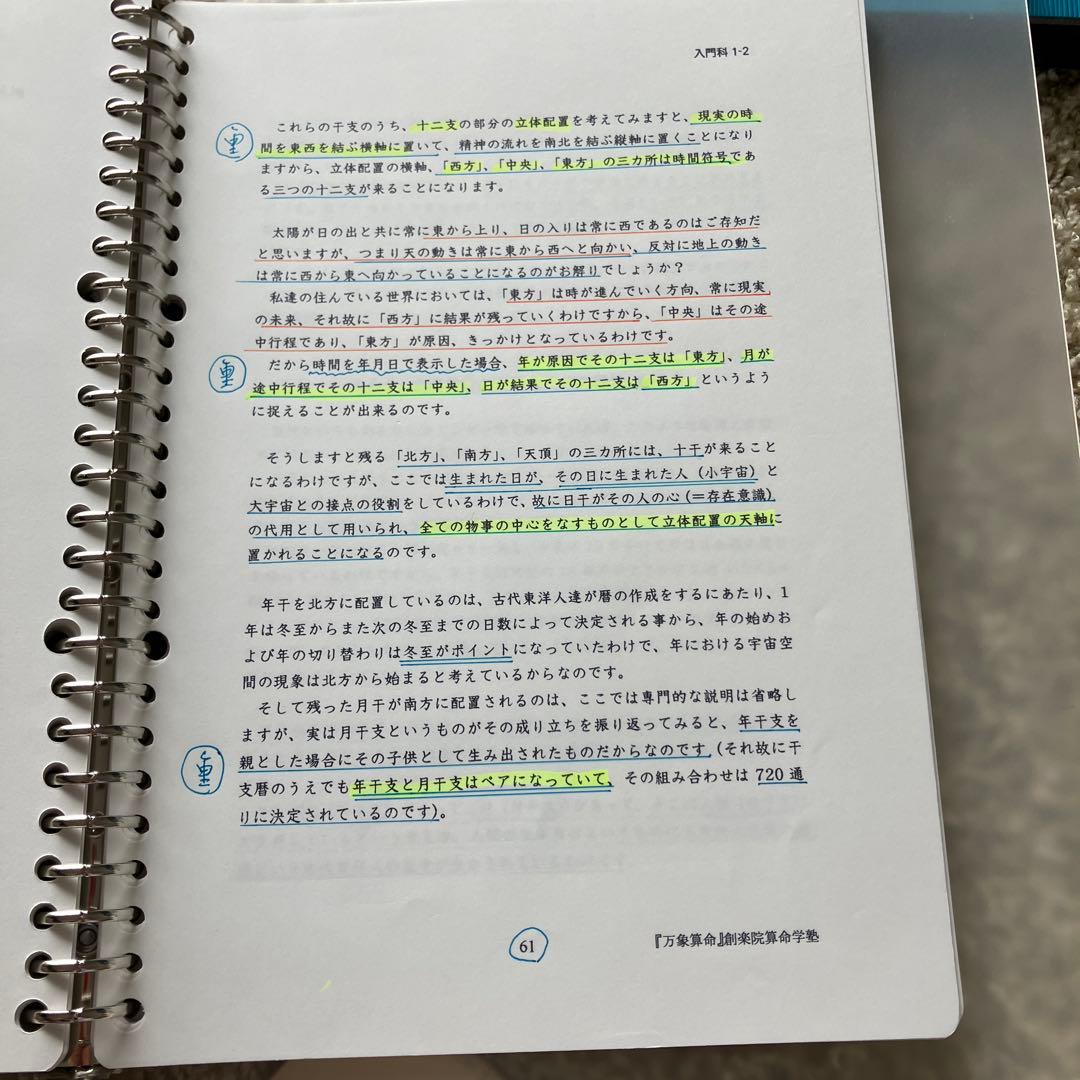 入門科 1-2
これらの干支のうち、十二支の部分の立体配置を考えてみますと、現実の時
重
間を東西を結ぶ横軸に置いて、精神の流れを南北を結ぶ縦軸に置くことになり
ますから、立体配置の横軸、「西方」、「中央」、「東方」の三カ所は時間符号であ
る三つの十二支が来ることになります。
太陽が日の出と共に常に東から上り、日の入りは常に西であるのはご存知だ
と思いますが、つまり天の動きは常に東から西へと向かい、反対に地上の動き
は常に西から東へ向かっていることになるのがお解りでしょうか？
私達の住んでいる世界においては、「東方」は時が進んでいく方向、常に現実
の未来、それ故に「西方」に結果が残っていくわけですから、「中央」はその途
中行程であり、「東方」が原因、きっかけとなっているわけです。
だから時間を年月日で表示した場合、年が原因でその十二支は「東方」、月が
重
途中行程でその十二支は「中央」、日が結果でその十二支は「西方」というよう
に捉えることが出来るのです。
そうしますと残る「北方」、「南方」、「天頂」の三カ所には、十干が来ること
になるわけですが、ここでは生まれた日が、その日に生まれた人（小宇宙）と
大宇宙との接点の役割をしているわけで、故に日干がその人の心（＝存在意識）
の代用として用いられ、全ての物事の中心をなすものとして立体配置の天軸に
置かれることになるのです。
年干を北方に配置しているのは、古代東洋人達が暦の作成をするにあたり、1
年は冬至からまた次の冬至までの日数によって決定される事から、年の始めお
よび年の切り替わりは冬至がポイントになっていたわけで、年における宇宙空
間の現象は北方から始まると考えているからなのです。
そして残った月干が南方に配置されるのは、ここでは専門的な説明は省略し
ますが、実は月干支というものがその成り立ちを振り返ってみると、年干支を
重
親とした場合にその子供として生み出されたものだからなのです（それ故に干
支暦のうえでも年干支と月干支はペアになっていて、その組み合わせは 720 通
りに決定されているのです）。
61
『万象算命』創楽院算命学塾